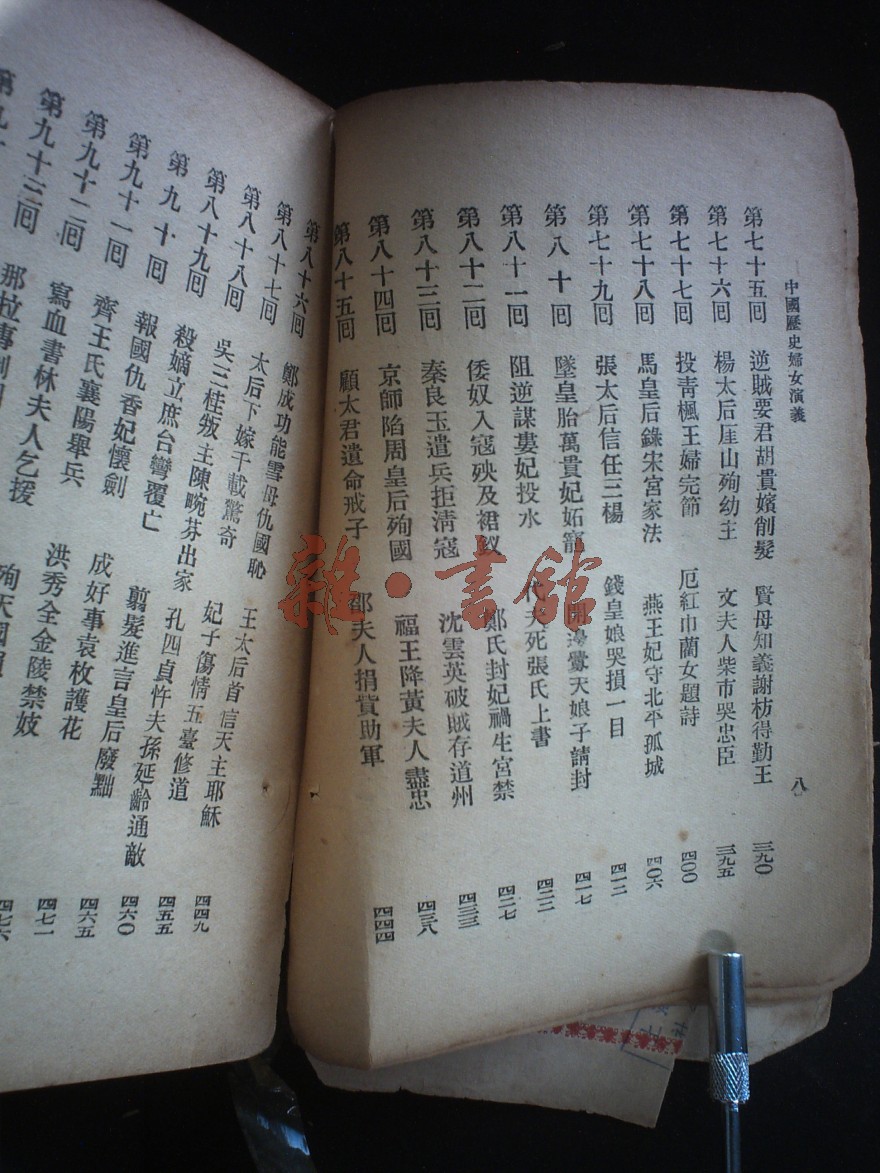 中國歷史婦女演義
八
第七十五回 逆賊要君胡貴嬪削髮 賢母知義謝枋得勤王 三九〇
第七十六回 楊太后厓山殉幼主 文夫人柴市哭忠臣 三九五
第七十七回 投靑楓王婦完節 厄紅巾蘭女題詩 四〇〇
第七十八回 馬皇后錄宋宮家法 燕王妃守北平孤城 四〇六
第七十九回 張太后信任三楊 錢皇娘哭損一目 四一二
第八十回 墜皇胎萬貴妃妬寵 開邊釁天娘子請封 四一七
第八十一回 阻逆謀婁妃投水 代夫死張氏上書 四二二
第八十二回 倭奴入寇殃及裙釵 鄭氏封妃禍生宮禁 四二七
第八十三回 秦良玉遣兵拒淸寇 沈雲英破賊存道州 四三三
第八十四回 京師陷周皇后殉國 福王降黃夫人盡忠 四三八
第八十五回 顧太君遺命戒子 邵夫人捐貲助軍 四四四
第八十六回 鄭成功能雪母仇國恥 王太后首信天主耶穌 四四九
第八十七回 太后下嫁千載驚奇 妃子傷情五臺修道 四五五
第八十八回 吳三桂叛主陳畹芬出家 孔四貞忤夫孫延齡通敵 四六〇
第八十九回 殺嫡立庶台灣覆亡 翦髮進言皇后廢黜 四六五
第九十回 報國仇香妃懷劍 成好事袁枚護花 四七一
第九十一回 齊王氏襄陽舉兵 洪秀全金陵禁妓 四七六
第九十二回 寫血書林夫人乞援
第九十三回 那拉專制
雜·書館